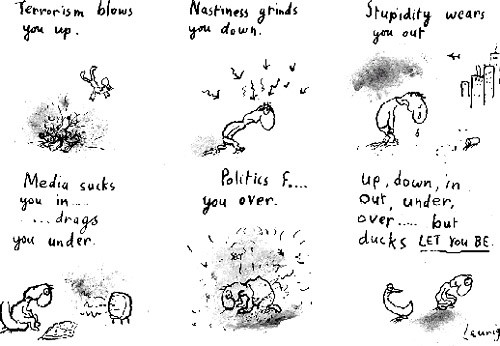 Terrorism blows
you up.
Nastiness grinds
you down.
Stupidity wears
you out
Media sucks
you in....
...drags
you under.
Politics F....
you over.
up, down, in
out, under,
over..... but
ducks LET YOU BE.